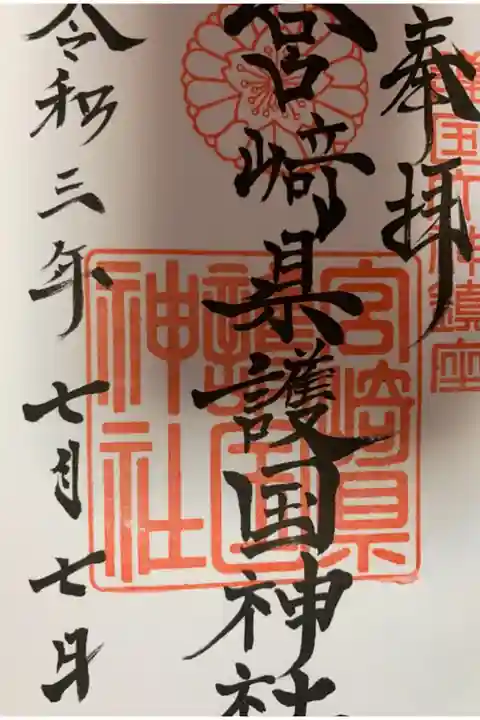 神鎮座
奉拝
宮﨑県護国神社
宮崎県
護国
神社
令和三年七月七日